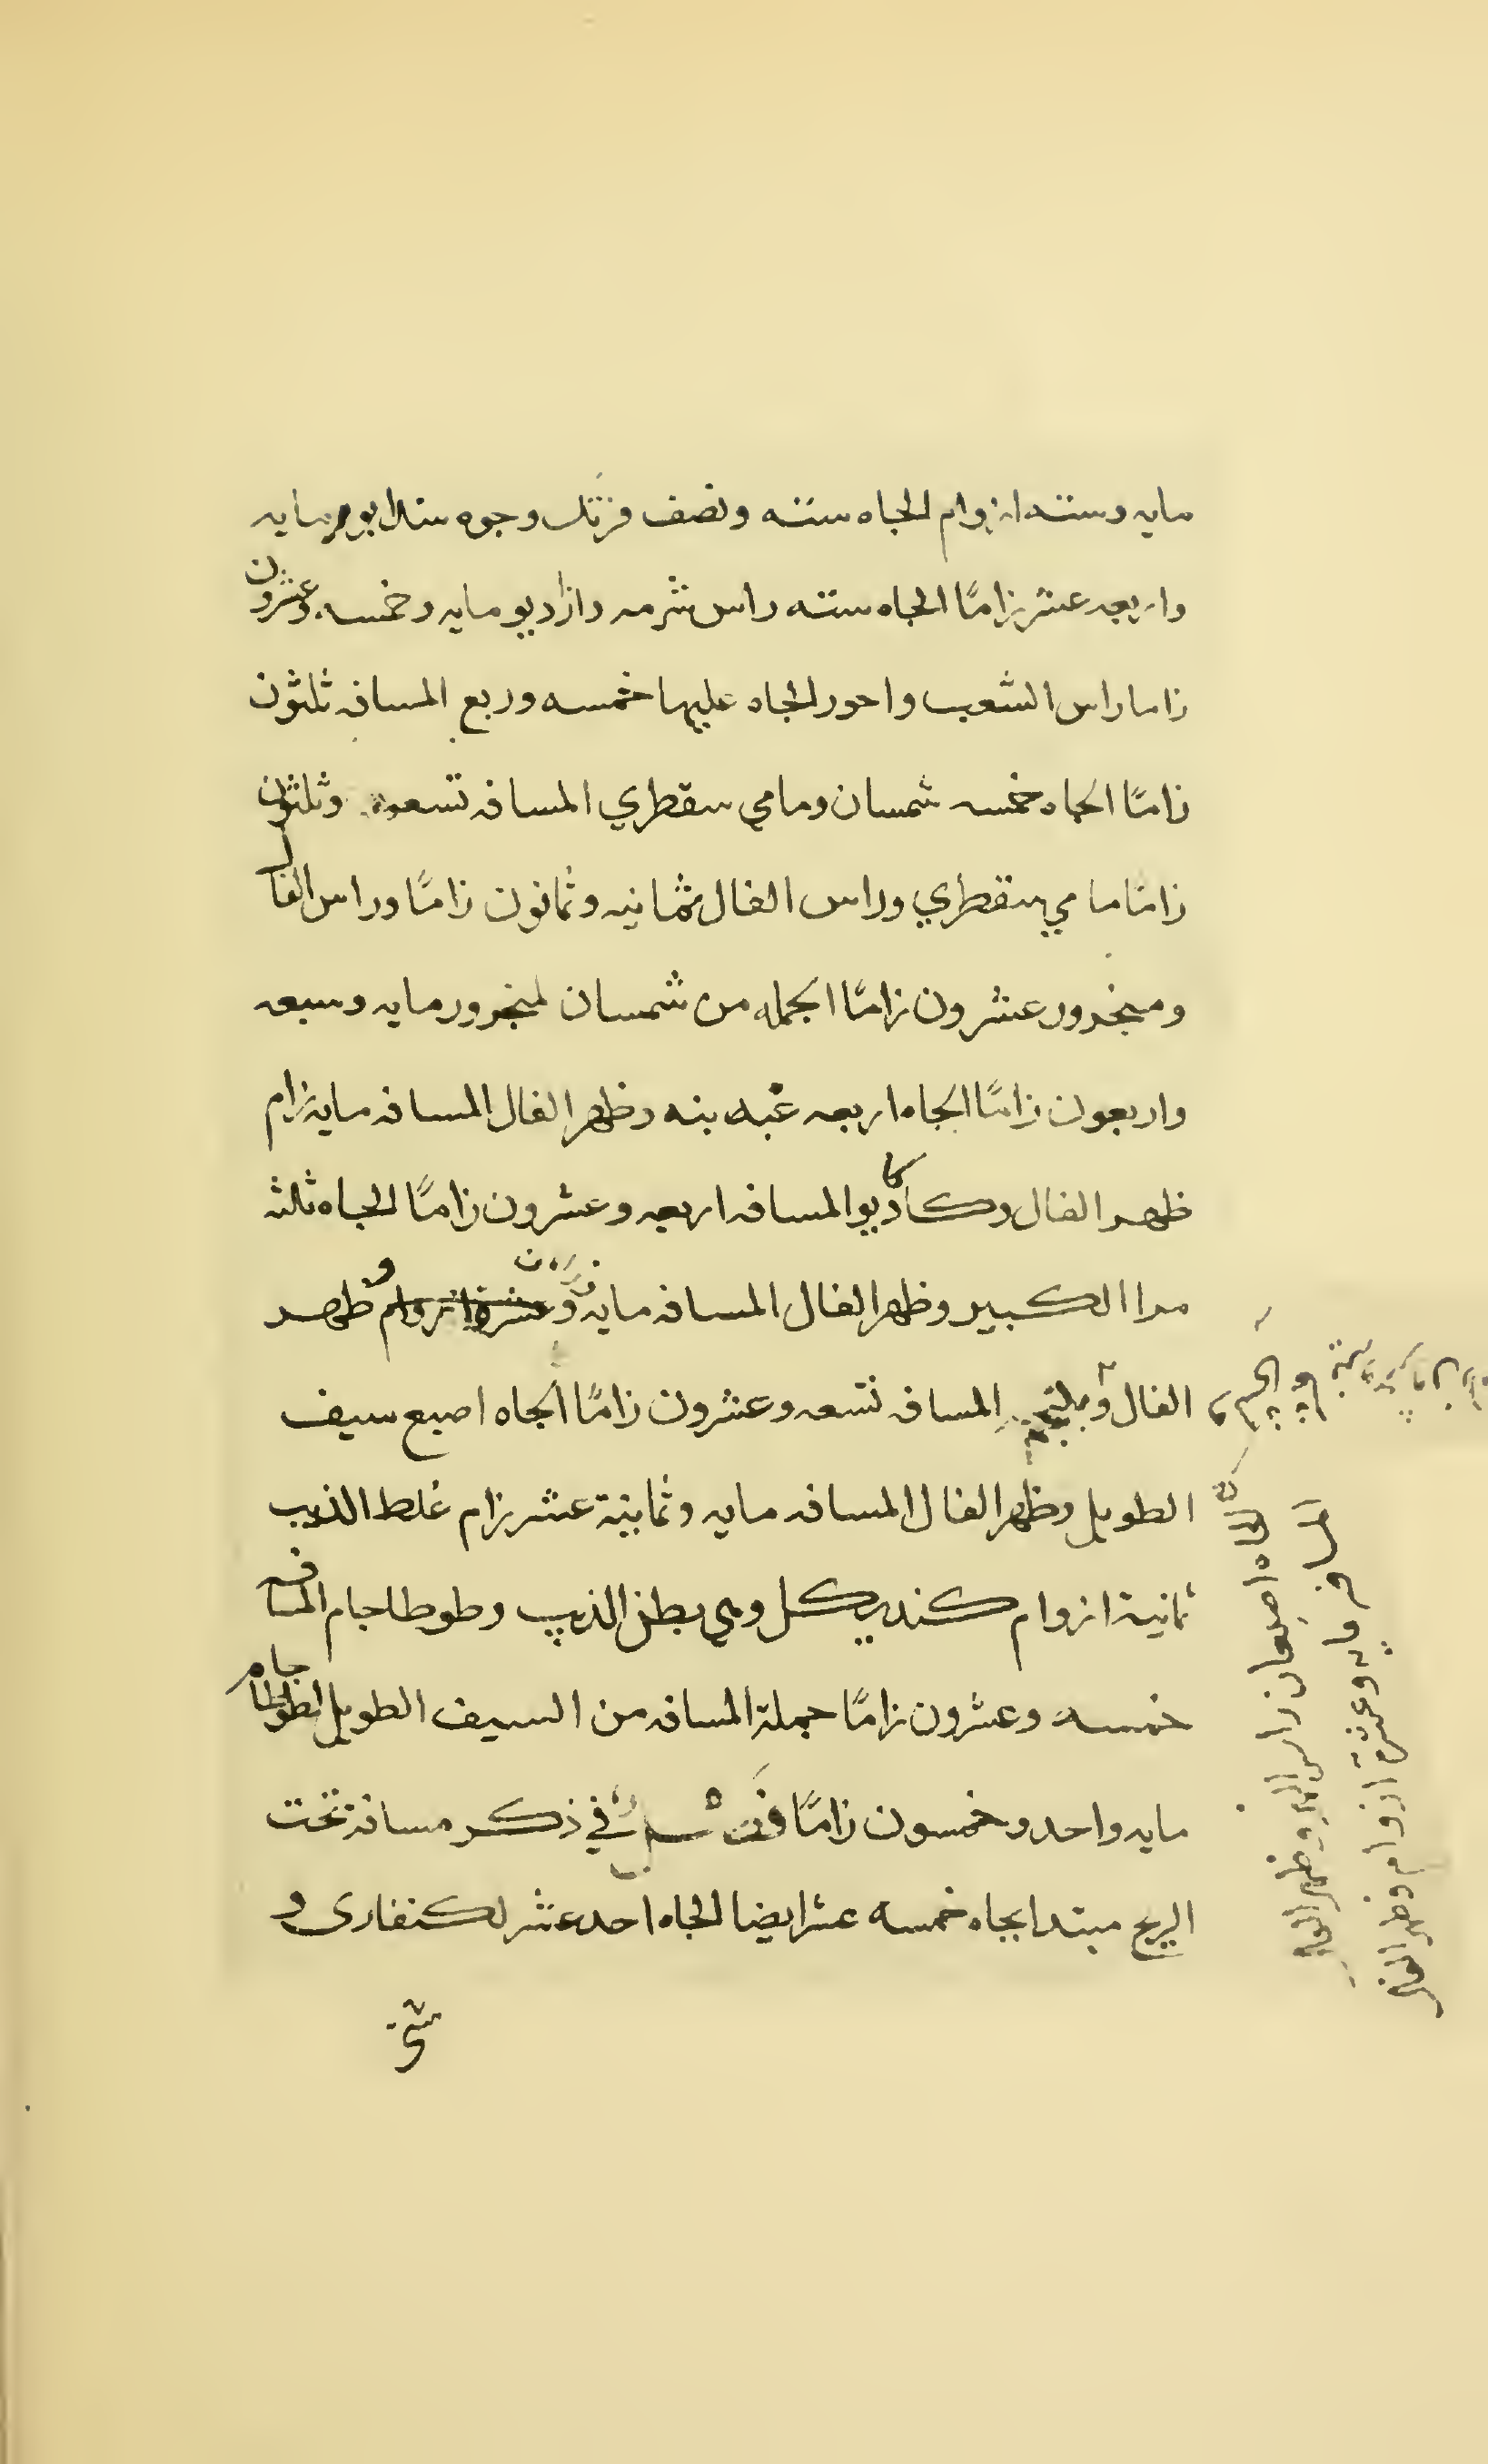 مايه وستة ازوام الجاه سته ونصف فرتك وجوه سندابور مايه
واربعه عشر زامًا الجاه سته راس شرمه وازاديو مايه وخمسه وعشرون
زاما راس الشعب واحور الجاه عليها خمسه وربع المسافه ثلثون
زامًا الجاه خمسه شمسان ومامي سقطري المسافه تسعه وثلثون
زامًا مامي سقطري وراس الفال ثمانيه وثمانون زامًا وراس الفال
ومنجرور عشرون زامًا الجمله من شمسان لمنجرور مايه وسبعه
واربعون زامًا الجاه اربعه غبه بنه وظهر الفال المسافه مايه زام
ظهر الفال وكاديو المسافه اربعه وعشرون زامًا الجاه ثلثه
مرا الكبير وظهر الفال المسافه مايه وعشرة ازوام وظهر
الفال و المسافه تسعه وعشرون زامًا الجاه اصبع سيف
الطويل وظهر الفال المسافه مايه وثمانية عشر زام غلط الذيب
ثمانية ازوام كنديكل وهي بطن الذيب وطوطاجام المسافه
خمسه وعشرون زامًا جملة المسافه من السيف الطويل لطوطاجام
مايه واحد وخمسون زامًا فصل في ذكر مسافة تحت
الريح مبتدا بجاه خمسه عشر ايضا الجاه احدعشر لكنفارى و
الجاه اصبعان راس وظهر الفال
المسافه مايه وعشرة ازوام وظهر الفال